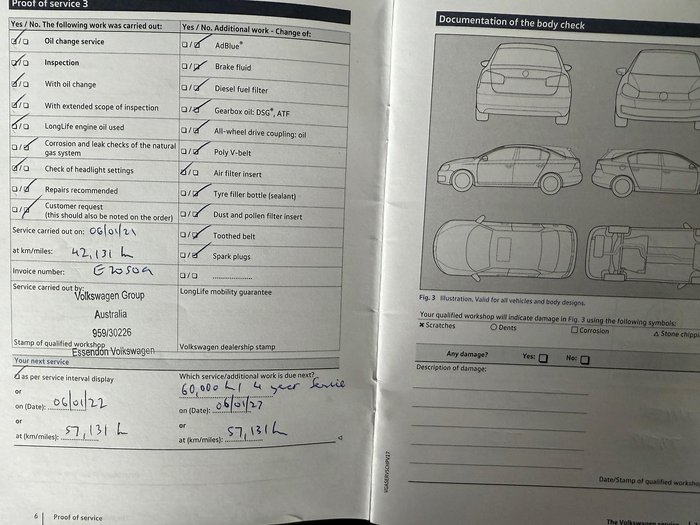 Proof of service 3
Yes / No. The following work was carried out:
Oil change service
Inspection
With oil change
With extended scope of inspection
LongLife engine oil used
Corrosion and leak checks of the natural
gas system
Check of headlight settings
Repairs recommended
Customer request
(this should also be noted on the order)
Service carried out on: 06/01/21
at km/miles: 42,131 k
Invoice number:
Service carried out by:
Volkswagen Group
Australia
959/30226
Stamp of qualified workshop
Essendon Volkswagen
Yes / No. Additional work - Change of:
AdBlue®
Brake fluid
Diesel fuel filter
Gearbox oil: DSG®, ATF
All-wheel drive coupling: oil
Poly V-belt
Air filter insert
Tyre filler bottle (sealant)
Dust and pollen filter insert
Toothed belt
Spark plugs
LongLife mobility guarantee
Volkswagen dealership stamp
Your next service
as per service interval display
or
on (Date): 06/01/22
or
at (km/miles): 57,131 k
Which service/additional work is due next?
60,000 k / 4 year service
on (Date): 06/01/22
or
at (km/miles): 57,131 k
6 | Proof of service
Documentation of the body check
Fig. 3 Illustration. Valid for all vehicles and body designs.
Your qualified workshop will indicate damage in Fig. 3 using the following symbols:
× Scratches
○ Dents
□ Corrosion
△ Stone chippi
Any damage? Yes: □ No: □
Description of damage:
Date/Stamp of qualified worksho
The Volkswagen